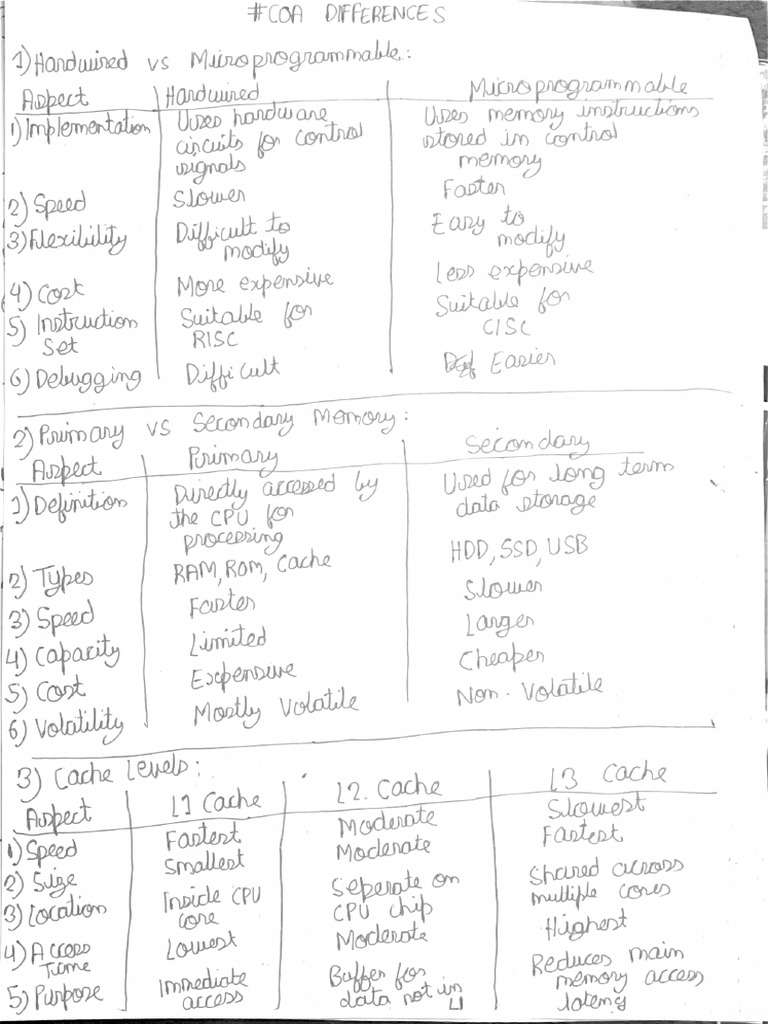 #COA DIFFERENCES
1) Hardwired vs Microprogrammable:
Aspect Hardwired Microprogrammable
1) Implementation Uses hardware circuits for control signals Uses memory instructions stored in control memory
2) Speed Slower Faster
3) Flexibility Difficult to modify Easy to modify
4) Cost More expensive Less expensive
5) Instruction Set Suitable for RISC Suitable for CISC
6) Debugging Difficult Easier
2) Primary vs Secondary Memory:
Aspect Primary Secondary
1) Definition Directly accessed by the CPU for processing Used for long term data storage
2) Types RAM, ROM, Cache HDD, SSD, USB
3) Speed Faster Slower
4) Capacity Limited Larger
5) Cost Expensive Cheaper
6) Volatility Mostly Volatile Non-Volatile
3) Cache Levels:
Aspect L1 Cache L2 Cache L3 Cache
1) Speed Fastest Moderate Slowest
2) Size Smallest Moderate Fastest
3) Location Inside CPU core Seperate on CPU chip Shared across multiple cores
4) Access Time Lowest Moderate Highest
5) Purpose Immediate access Buffer for data not in L1 Reduces main memory access lateny